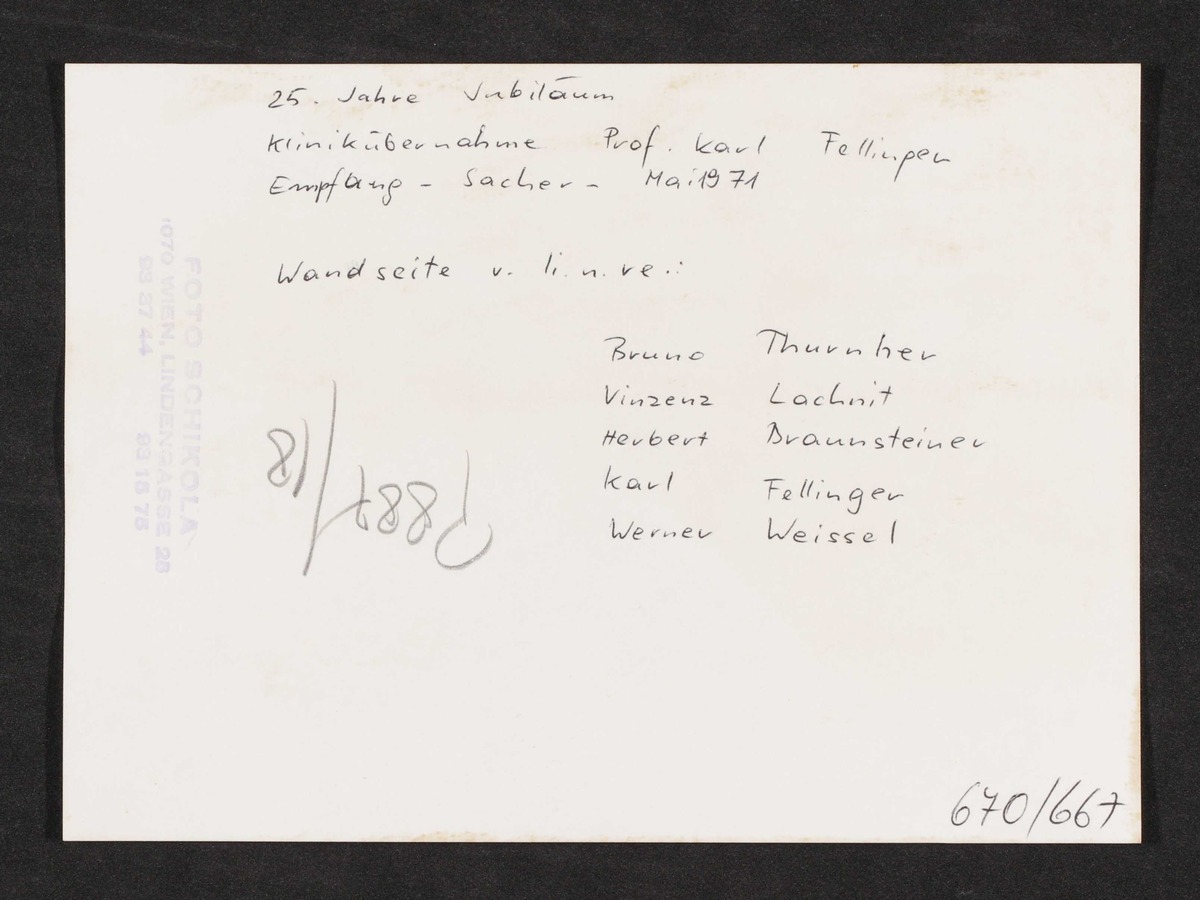 25. Jahre Jubiläum
Klinikübernahme Prof. Karl Fellinger
Empfang - Sacher - Mai 1971
Wandseite v. li. n. re.:
Bruno Thurnher
Vinzenz Lachnit
Herbert Braunsteiner
Karl Fellinger
Werner Weissel
FOTO SCHIKOLA
1070 WIEN, LINDENGASSE 28
93 37 44
670/667